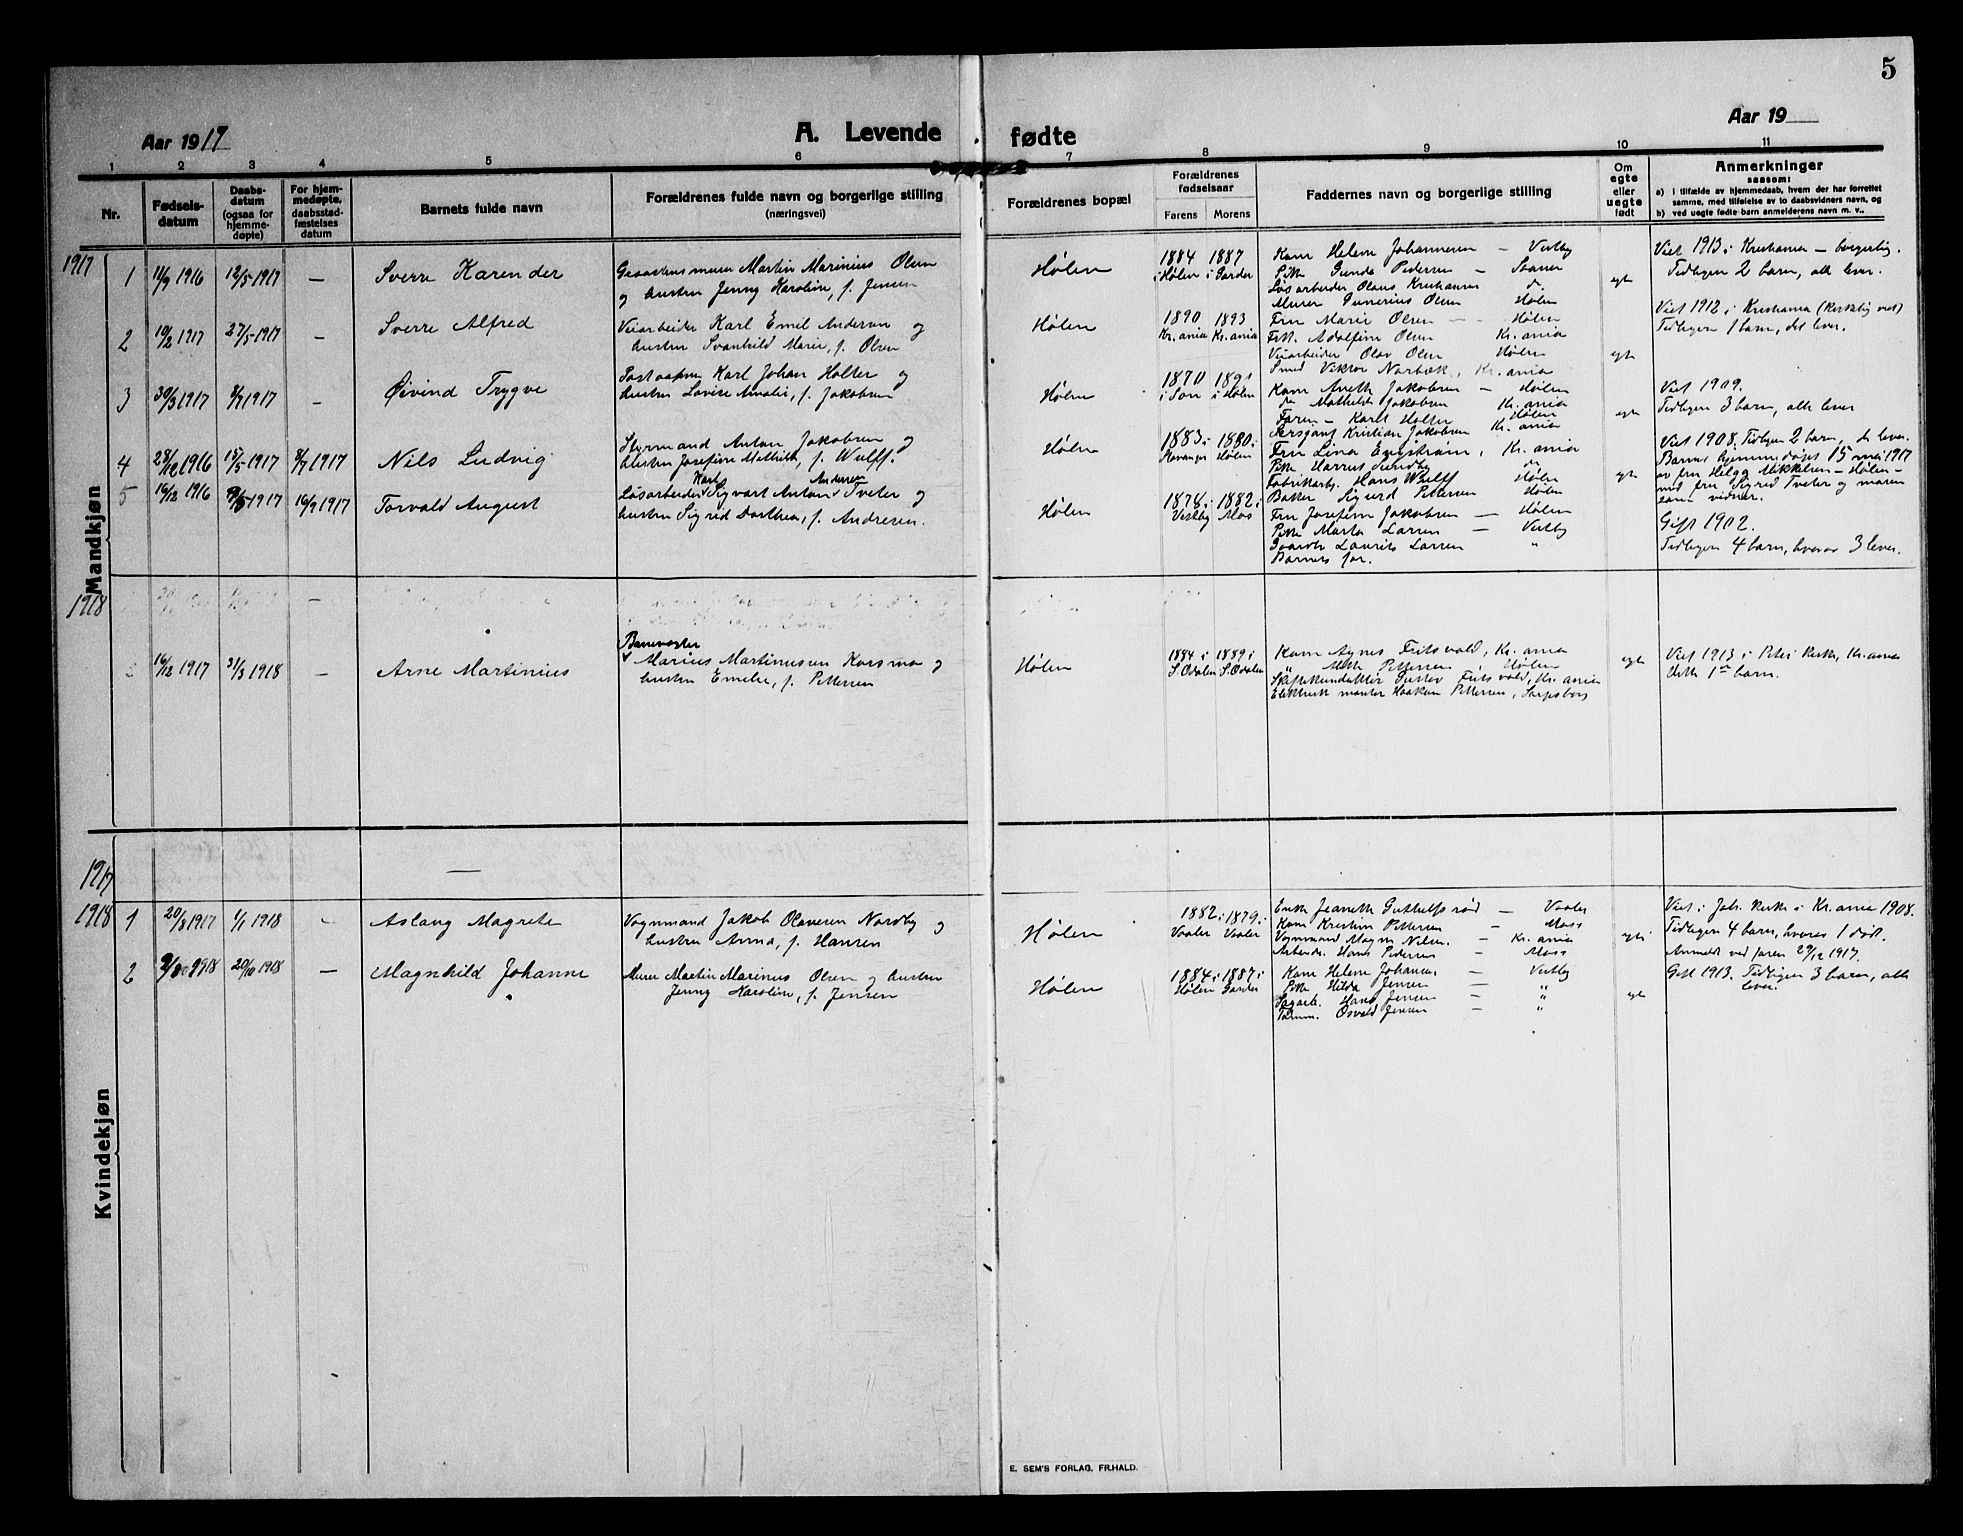 5
Aar 1917
A. Levende fødte
Aar 19
1 2 3 4 5 6 7 8 9 10 11
Nr.
Fødsels-
datum
Daabs-
datum
(ogsaa for
hjemme-
døpte)
For hjem-
medøpte,
daabsstad-
fæstelses
datum
Barnets fulde navn
Forældrenes fulde navn og borgerlige stilling
(næringsvei)
Forældrenes bopæl
Forældrenes
fødselsaar
Farens Morens
Faddernes navn og borgerlige stilling
Om
egte
eller
uegte
født
Anmerkninger
saasom:
a) i tilfælde av hjemmedaab, hvem der har forrettet
samme, med tilføielse av to daabsvidners navn, og
b) ved uegte fødte barn anmelderens navn m. v..
Mandkjøn
1917
1 11/9 1916 12/5 1917 — Sverre Karender
Martin Marinius Olsen
og hustru Jenny Karoline, f. Jensen
Hølen
1884 1887
i Hølen i Garder
Kom Helene Johannesen — Vestby
Pike Gunda Pedersen — Saaner
Løsarbeider Olaus Kristiansen do
Murer Gunerius Olsen Hølen
egte
Viet 1913 i Kristiania — borgerlig.
Tidligere 2 barn, alle lever.
2 10/2 1917 27/5 1917 — Sverre Alfred
Veiarbeider Karl Emil Andersen og
hustru Svanhild Marie, f. Olsen
Hølen
1890 1893
Kr.ania Kr.ania
Fru Marie Olsen — Hølen
Frk. Adolfine Olsen Kr.ania
Veiarbeider Olav Olsen Hølen
Smed Viktor Norbæk, Kr.ania
egte
Viet 1912 i Kristiania (kirkelig viet)
Tidligere 1 barn, det lever.
3 30/3 1917 8/7 1917 — Øivind Trygve
Postaapner Karl Johan Holter og
hustru Lovise Amalie, f. Jakobsen
Hølen
1870 1891
i Son i Hølen
Kom Anette Jakobsen — Hølen
do Mathilde Jakobsen Kr.ania
Faren — Karl Holter Hølen
Kristian Jakobsen Kr.ania
egte
Viet 1909.
Tidligere 3 barn, alle lever
4 28/12 1916 15/5 1917 8/7 1917 Nils Ludvig
Styrmand Anton Jakobsen og
hustru Josefine Mathilde, f. Wulff.
Hølen
1883 i 1880 i
Stavanger Hølen
Fru Lina Engstrøm, Kr.ania
Pike Harriet Sundby do
Fabrikarb. Hans Wulff Hølen
Baker Sigurd Pettersen Hølen
egte
Viet 1908. Tidligere 2 barn, de lever.
Barnet hjemmedøpt 15 mai 1917
av fru Helga Mikkelsen — Hølen —
med fru Sigrid Tveter og moren
som vidner.
5 16/12 1916 9/5 1917 16/9 1917 Torvald August
Karl Andersen
Løsarbeider Sigvart Anton Tveter og
hustru Sigrid Dorthea, f. Andresen.
Hølen
1878 i 1882 i
Vestby Mos
Fru Josefine Jakobsen — Hølen
Pike Marta Larsen — Vestby
Gaardbr Laurits Larsen "
Barnets far.
Gift 1902.
Tidligere 4 barn, hvorav 3 lever.
1918
16/12 1917 31/3 1918 — Arne Martinius
Banevogter
Marius Martinusen Korsmo og
hustru Emelie, f. Pettersen
Hølen
1884 i 1889 i
S.Odalen S.Odalen
Kom Agnes Fritsvold, Kr.ania
" Mette Pettersen Hølen
Gustav Fritsvold, Kr.ania
Elektrisk montør Haakon Pettersen, Sarpsborg
egte
Viet 1913 i Petri kirke, Kr.ania
Dette 1ste barn.
Kvindekjøn
1917 —
1918
1 20/8 1917 1/1 1918 — Aslaug Magrete
Vognmand Jakob Olavesen Nordby og
hustru Anna, f. Hansen
Hølen
1882 i 1879 i
Vaaler Vaaler
Enke Jeanette Guthulfsrød — Vaaler
Kom Kristine Pettersen — Moss
Vognmand Magn Nilsen — Kr.ania
Arbeider Hans Pedersen — Moss
egte
Viet i Joh. kirke i Kr.ania 1908.
Tidligere 4 barn, hvorav 1 død.
Anmeldt ved faren 29/12 1917.
2 1918 20/10 1918 — Magnhild Johanne
Murer Martin Marinius Olsen og hustru
Jenny Karoline, f. Jensen
Hølen
1884 i 1887 i
Hølen Garder
Kom Helene Johansen — Vestby
Pike Hilda Jensen — "
Sagarb. Hans Jensen — "
Tømm. Osvald Jensen — "
egte
Gift 1913. Tidligere 3 barn, alle
lever.
E. SEM'S FORLAG, FR.HALD.